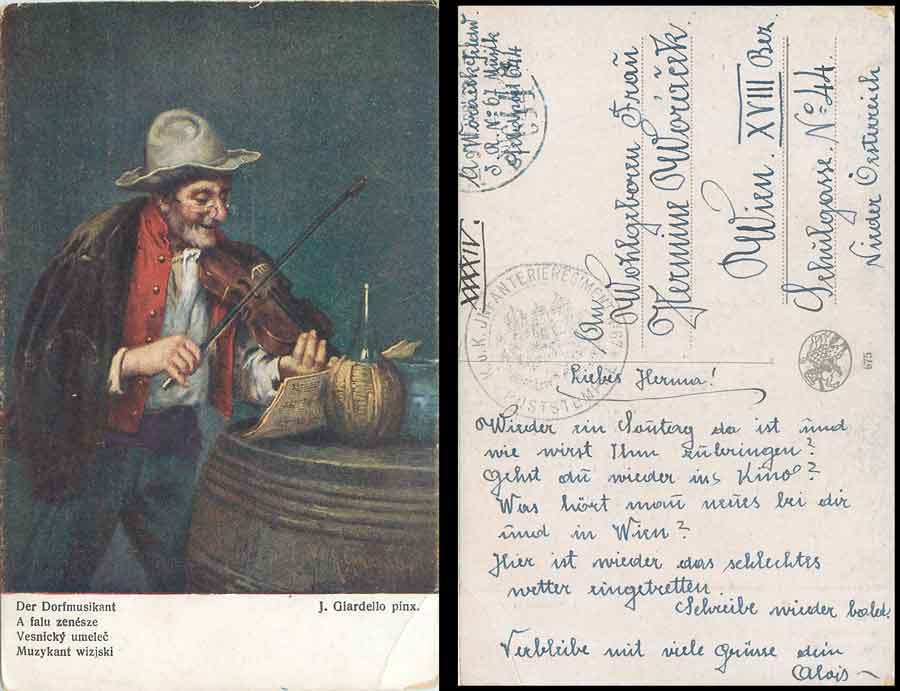 Der Dorfmusikant
J. Giardello pinx.
A falu zenésze
Vesnický umeleč
Muzykant wizjski
I. R. No 67 Musik
Feldpost 644
XXXIV.
K.U.K. INFANTERIEREGIMENT
An
Wohlgeboren Frau
Hermine Woráček
Wien. XVIII Bez
Schulgasse. No 44
Nieder Österreich
675
Liebes Herma!
Wieder ein Sontag da ist und
wie wirst Ihm zubringen?
Gehst du wieder ins Kino?
Was hört man neues bei dir
und in Wien?
Hier ist wieder das schlechtes
wetter eingetretten.
Schreibe wieder bald.
Verbleibe mit viele Grüsse dein
Alois